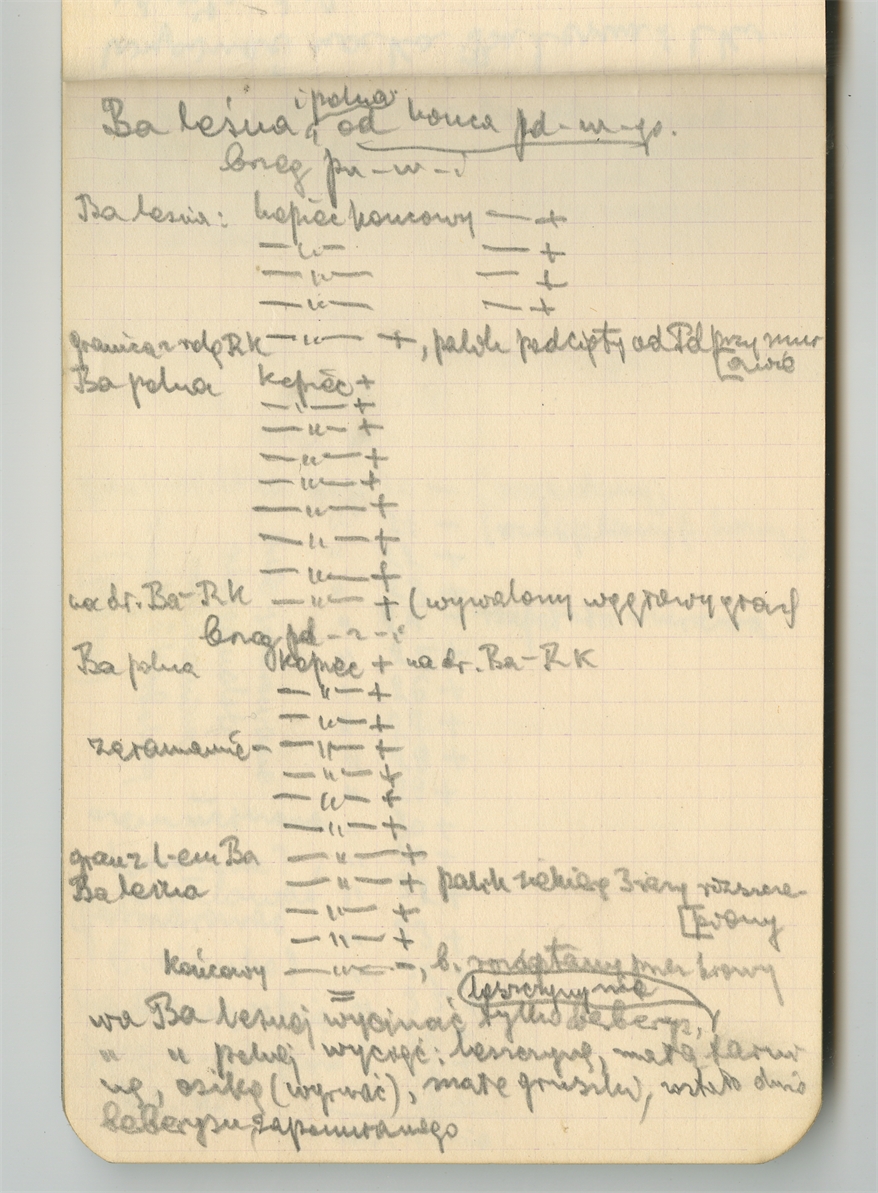 i polna
Ba leśna, od końca pd-w-go.
brzeg pn-w-i
Ba leśna: kopiec końcowy — +
— " — — +
— " — — +
— " — — +
granica z rolą RK — " — +, palik podcięty od Pd przy mur
[awie
Ba polna kopiec +
— " — +
— " — +
— " — +
— " — +
— " — +
— " — +
— " — +
na dr. Ba-RK — " — + (wywalony węgłowy graź
brzeg pd-z-i
Ba polna kopiec + na dr. Ba-RK
— " — +
— " — +
załamanie — " — +
— " — +
— " — +
— " — +
gran z l-em Ba — " — +
Ba leśna — " — + palik siekierą 3 razy rozszcze-
— " — + [piony
— " — +
końcowy — " — -, b. rozdeptany przez krowy
leszczyny nie
na Ba leśnej wycinać tylko beberys,
" " polnej wyciąć: leszczynę, małą tarni
nę, osikę (wyrwać), małe gruszki, dużo
beberysu zapomnianego